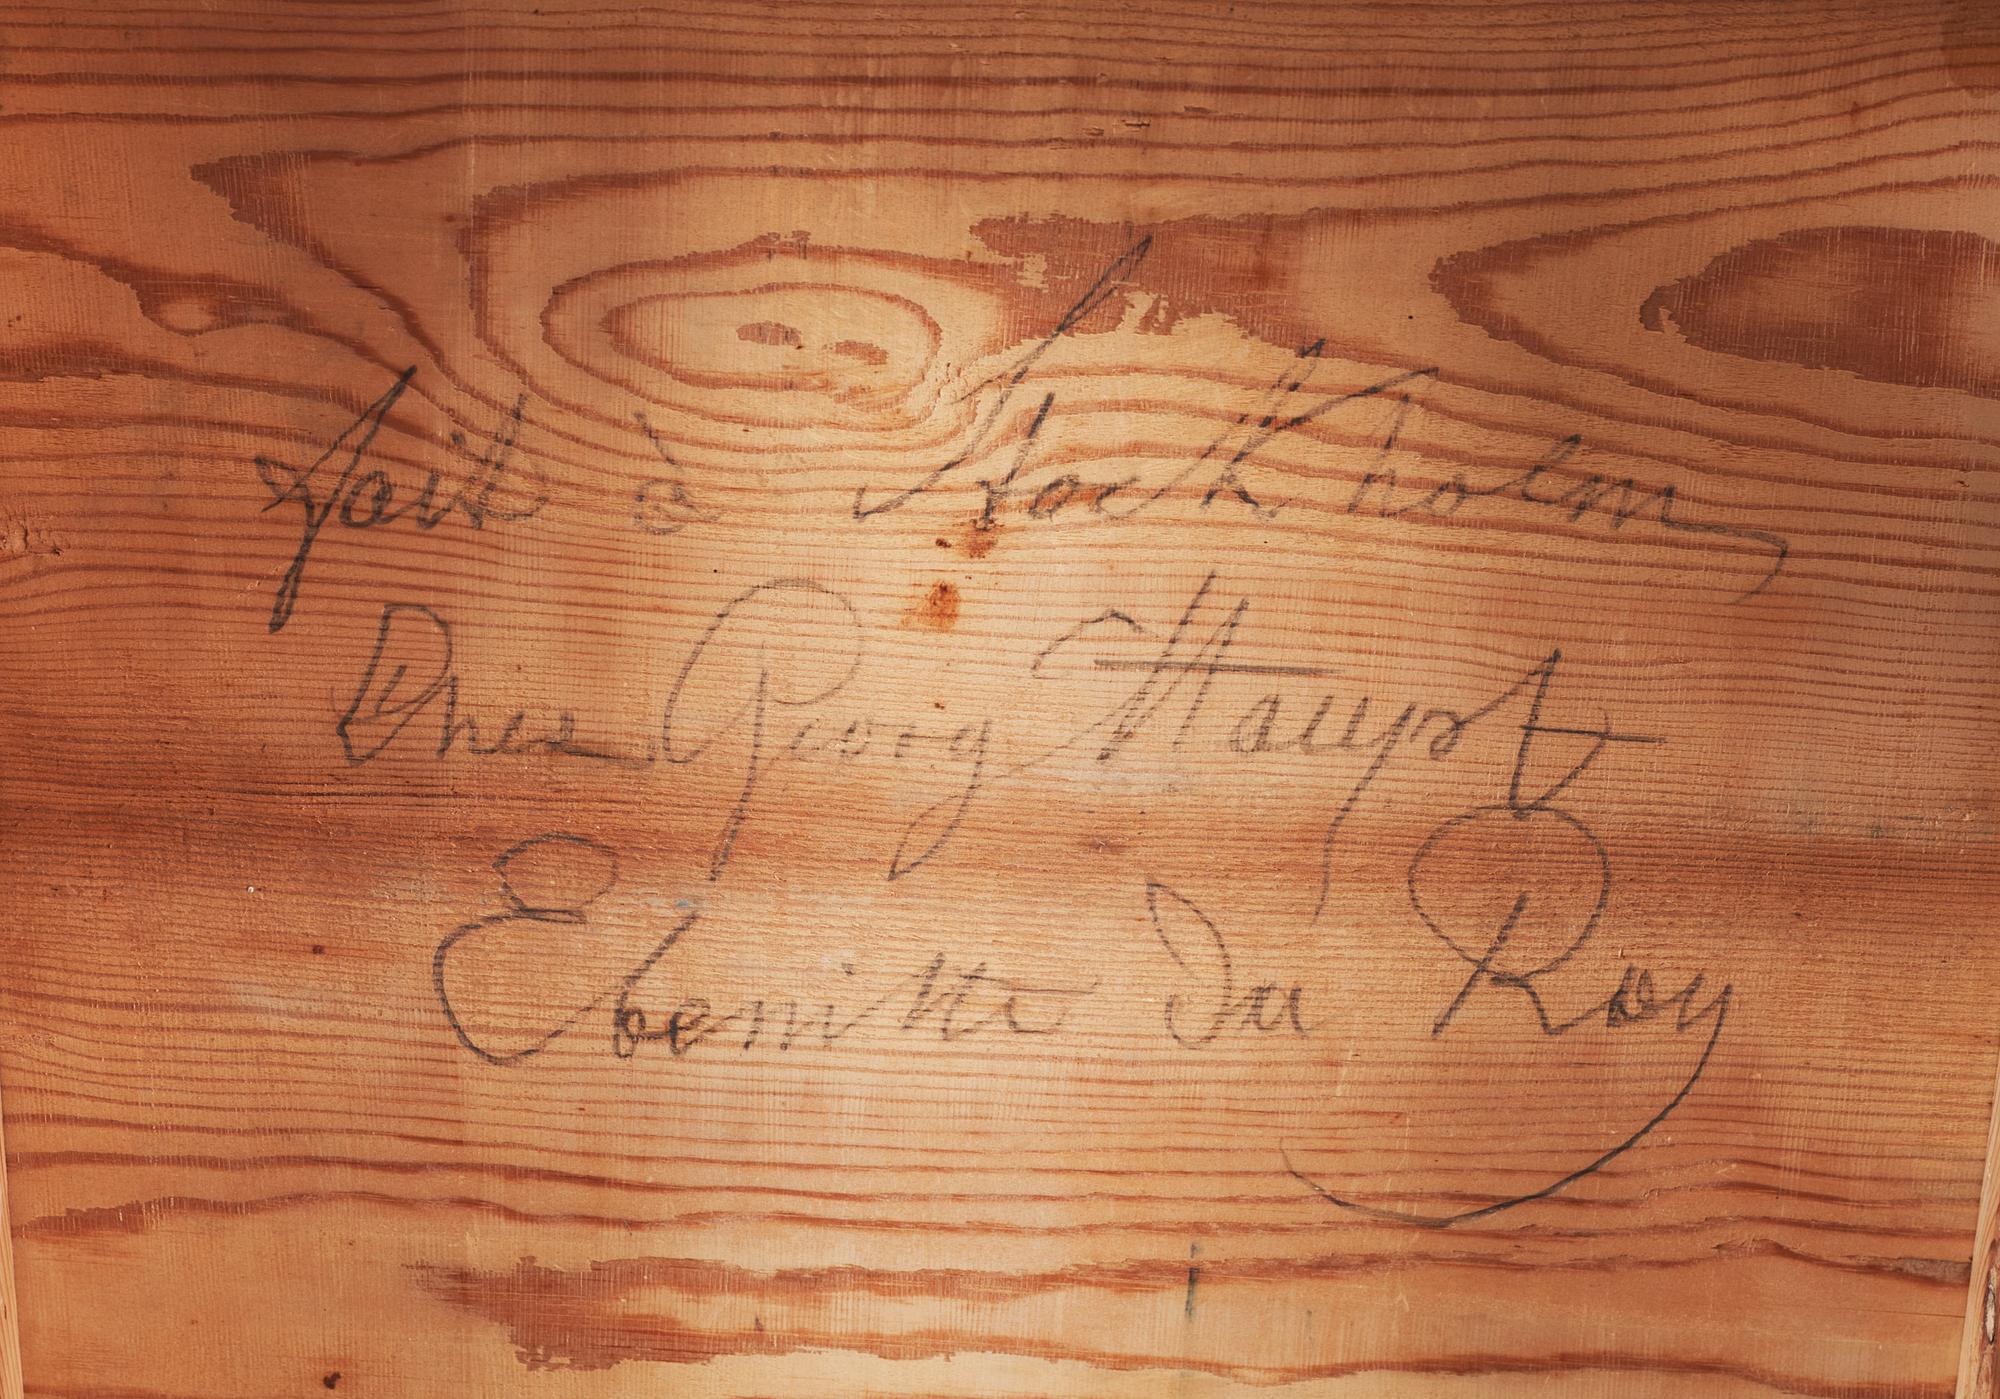 fait à Stockholm
Ches Georg Haupt
Ebenitte du Roy